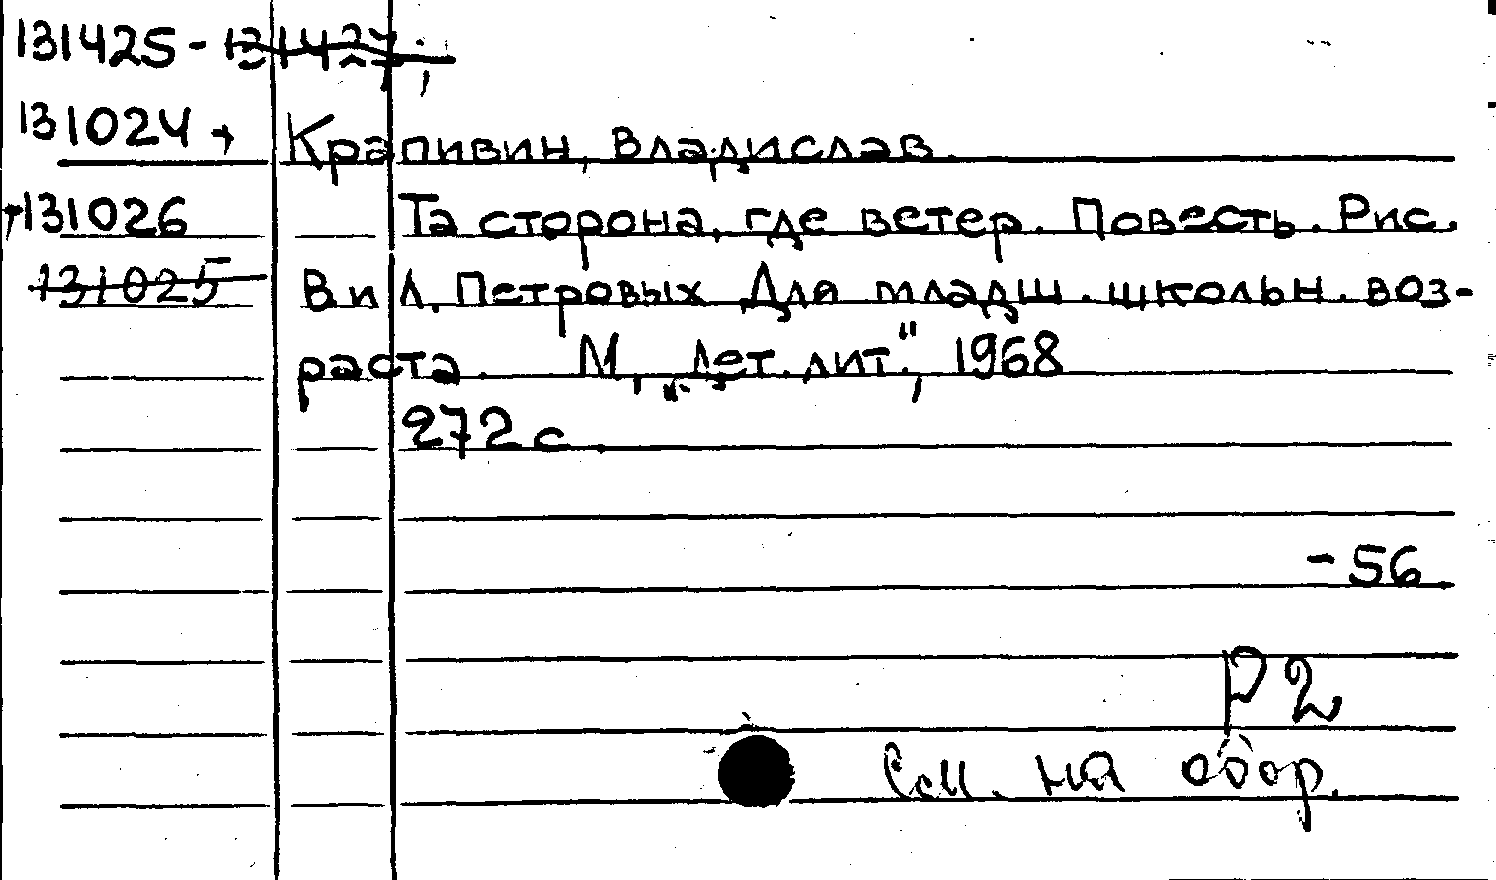 131425 - 131427;
131024 + Крапивин, Владислав.
+131026 Та сторона, где ветер. Повесть. Рис.
131025 В и Л. Петровых Для младш. школьн. воз-
раста. М, „Дет. лит.", 1968
272 с.
- 56
Р2
См. на обор.